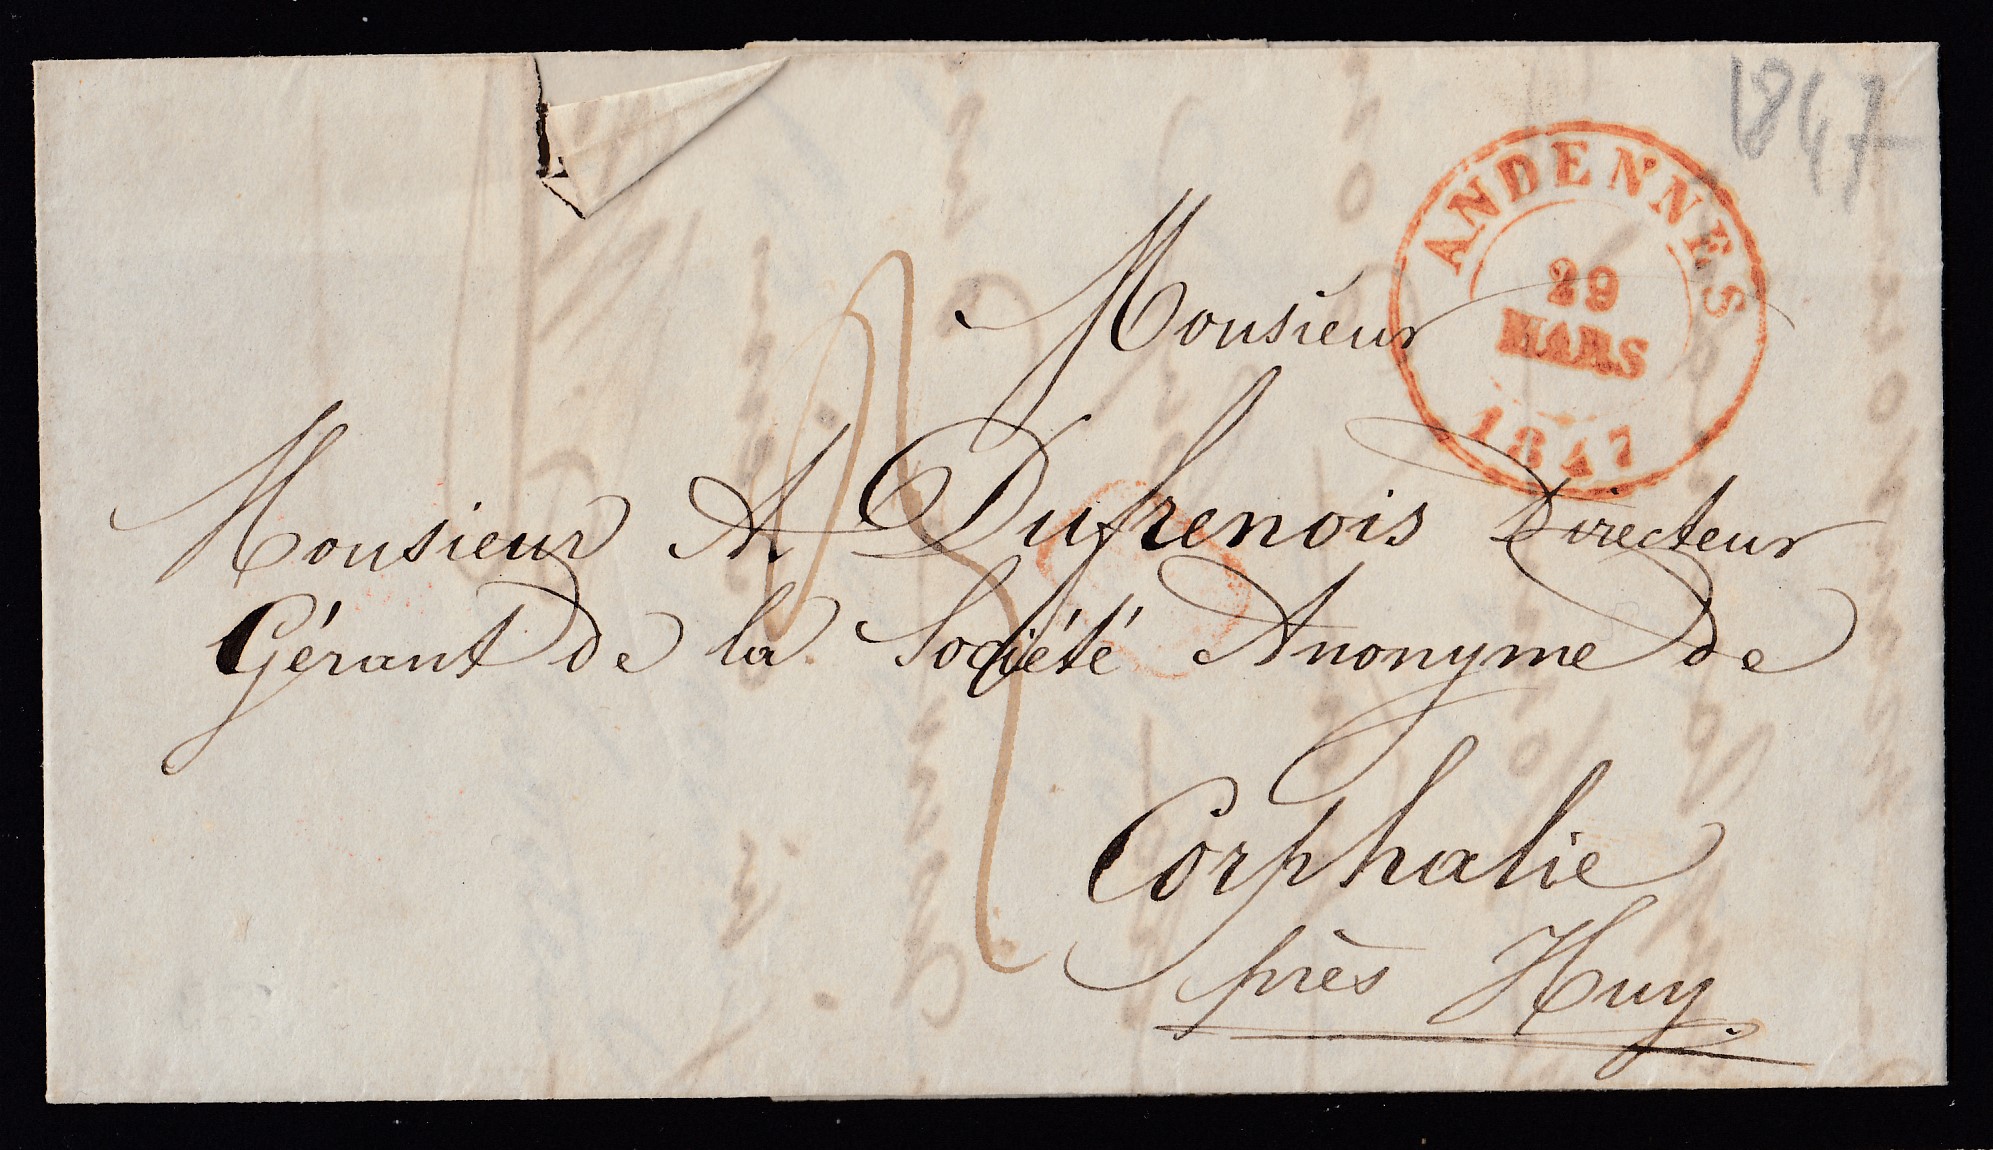 1847
ANDENNES
29
MARS
1847
Monsieur
Monsieur A Dufrenois Directeur
Gérant de la Société Anonyme de
Corphalie
près Huy.